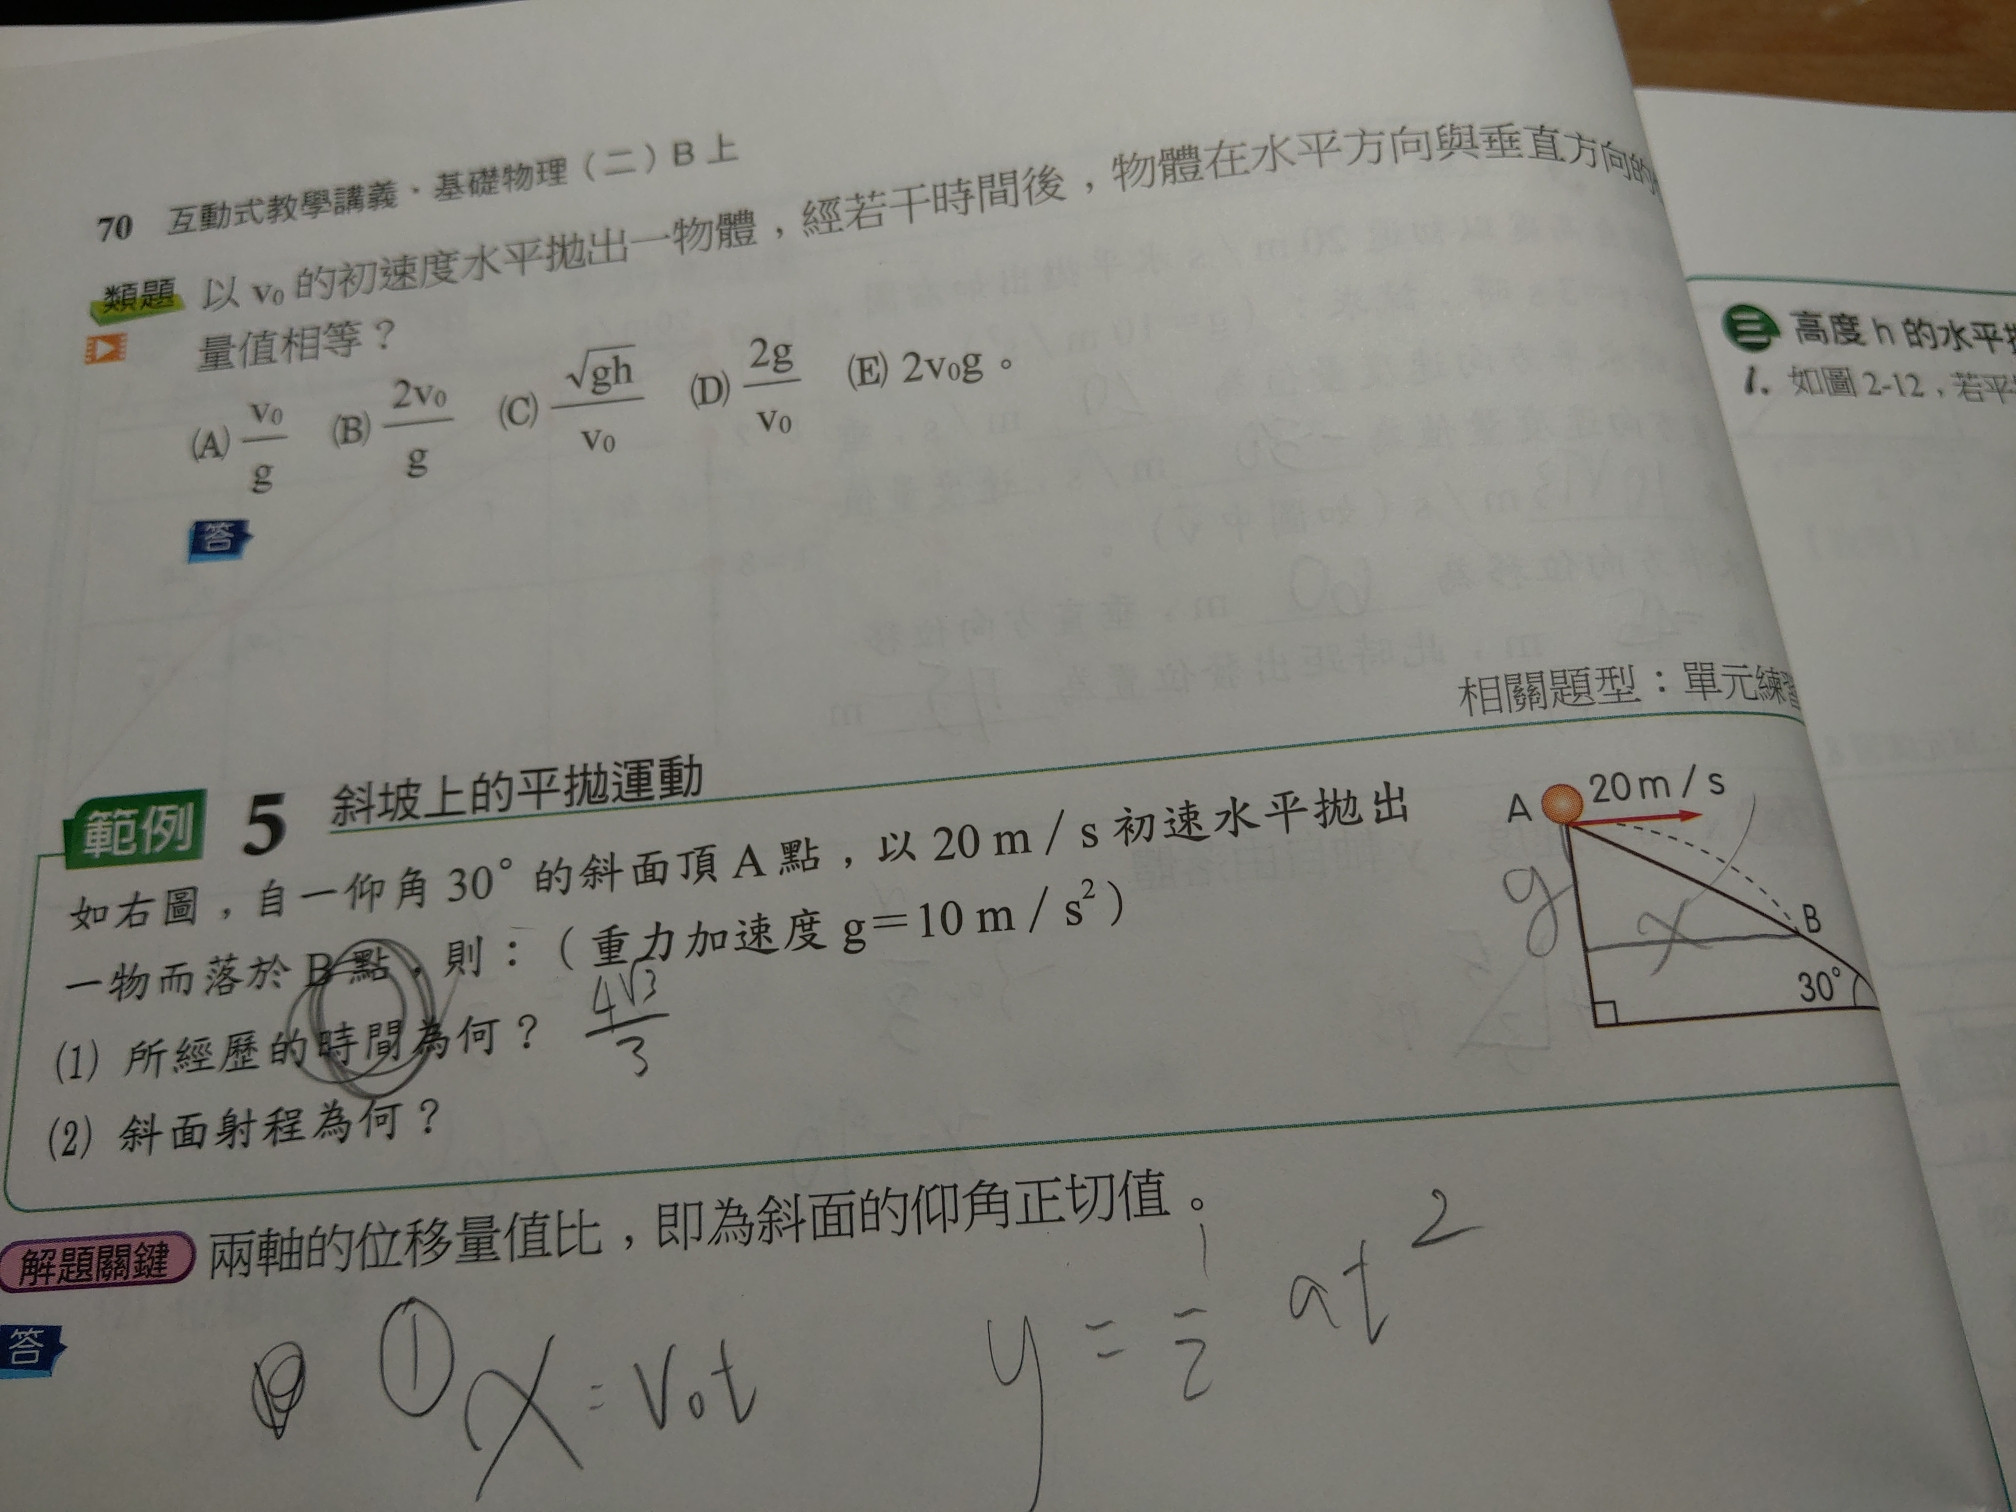 70 互動式教學講義·基礎物理（二）B上
類題 以 v₀ 的初速度水平拋出一物體，經若干時間後，物體在水平方向與垂直方向的
量值相等？
(A) v₀/g (B) 2v₀/g (C) √gh/v₀ (D) 2g/v₀ (E) 2v₀g。
答
相關題型：單元練習
三 高度 h 的水平
1. 如圖 2-12，若平
範例 5 斜坡上的平拋運動
如右圖，自一仰角 30° 的斜面頂 A 點，以 20 m / s 初速水平拋出
一物而落於 B 點，則：（重力加速度 g＝10 m / s²）
(1) 所經歷的時間為何？ 4√3/3
(2) 斜面射程為何？
A 20 m / s
y
x
B
30°
解題關鍵 兩軸的位移量值比，即為斜面的仰角正切值。
答
① x = v₀t y = 1/2 at²